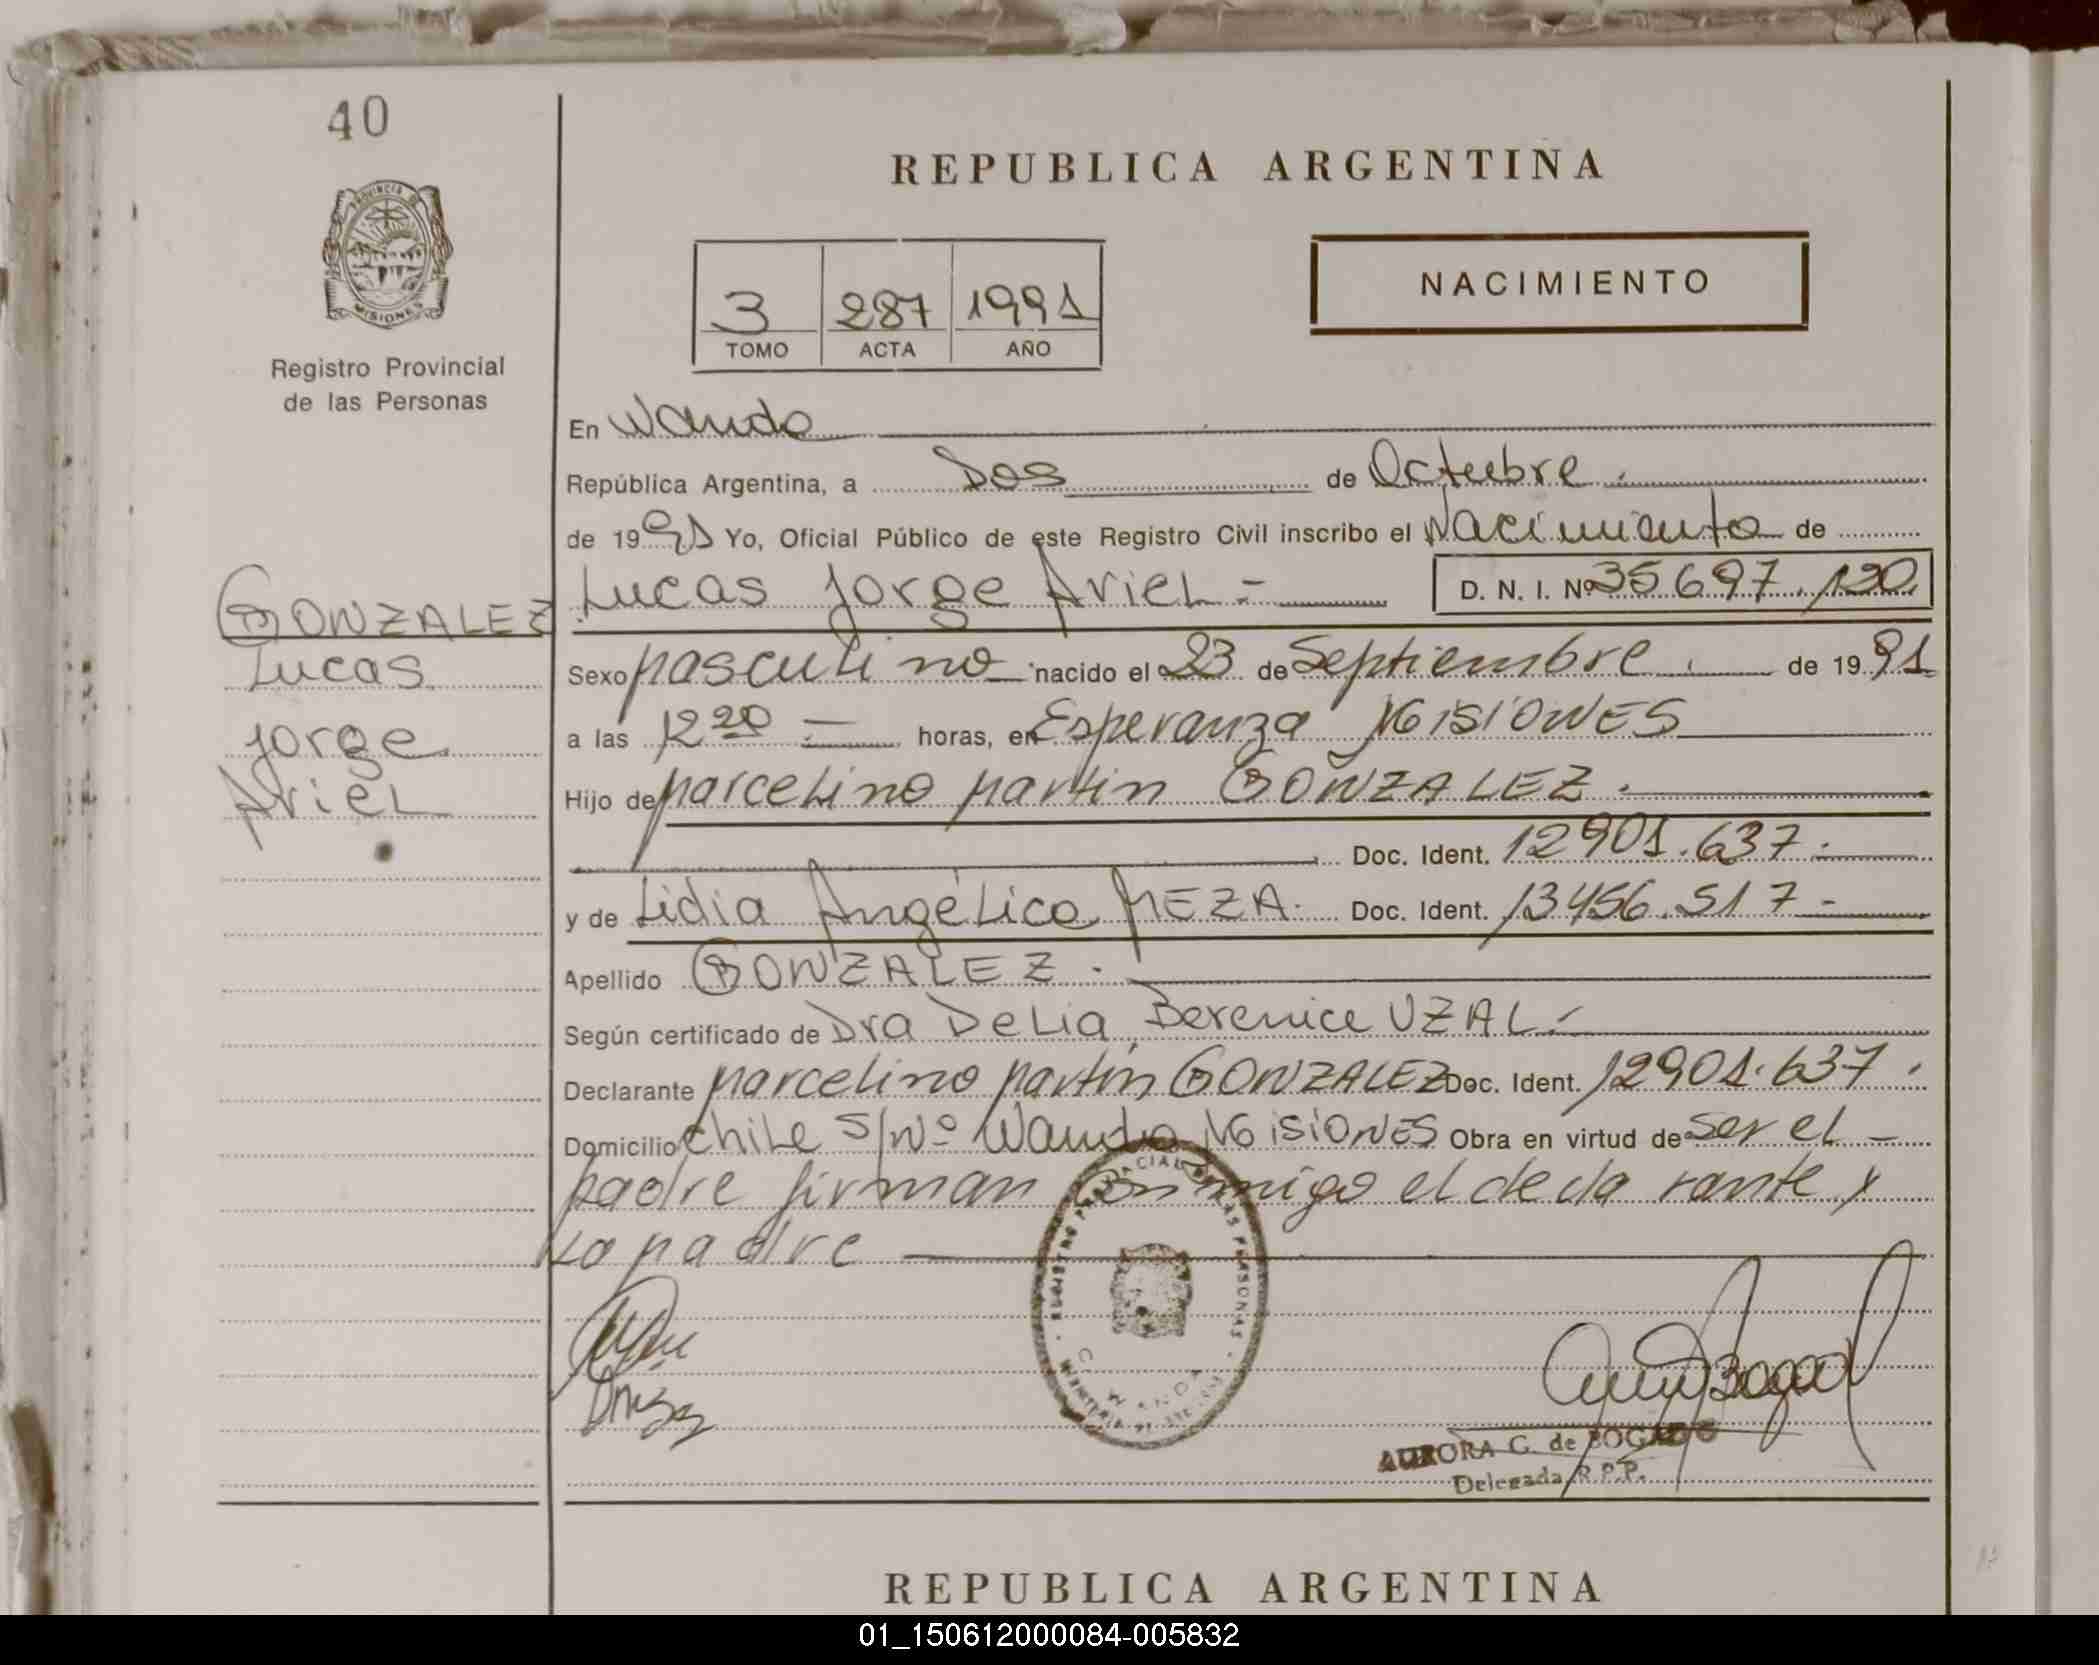 40
PROVINCIA DE
MISIONES
Registro Provincial
de las Personas
REPUBLICA ARGENTINA
3 287 1991
TOMO ACTA AÑO
NACIMIENTO
En Wanda
República Argentina, a Dos de Octubre.
de 1991 Yo, Oficial Público de este Registro Civil inscribo el Nacimiento de
GONZALEZ
Lucas
Jorge
Ariel
Lucas Jorge Ariel = D. N. I. Nº 35697.120
Sexo Masculino nacido el 23 de Septiembre. de 1991
a las 12 20 horas, en Esperanza MISIONES
Hijo de Marcelino Martin GONZALEZ.
Doc. Ident. 12901.637.
y de Lidia Angélica MEZA. Doc. Ident. 13456.517
Apellido GONZALEZ.
Según certificado de Dra Delia Berenice UZAL.
Declarante Marcelino Martin GONZALEZ Doc. Ident. 12901.637.
Domicilio Chile S/Nº Wanda MISIONES Obra en virtud de ser el
padre firman conmigo el declarante y
la madre
REGISTRO PROVINCIAL DE LAS PERSONAS
WANDA
AURORA G. de BOGADO
Delegada R.P.P.
REPUBLICA ARGENTINA
01_150612000084-005832